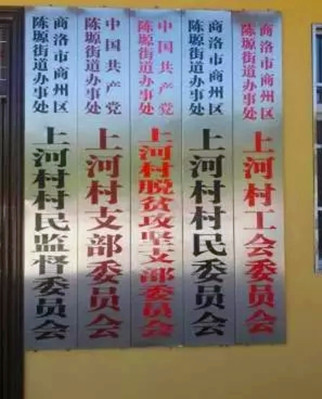 商洛市商州区
陈塬街道办事处
上河村工会委员会
商洛市商州区
陈塬街道办事处
上河村村民委员会
中国共产党
陈塬街道办事处
上河村脱贫攻坚支部委员会
中国共产党
陈塬街道办事处
上河村支部委员会
商洛市商州区
陈塬街道办事处
上河村村民监督委员会